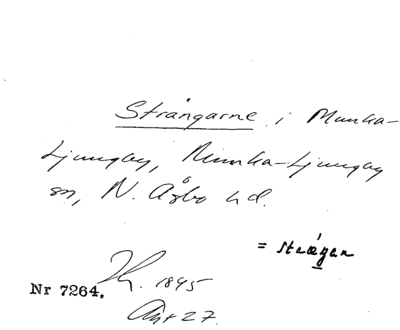 Strängarne i Munka-
Ljungby, Munka-Ljungby
sn, N. Åsbo hd.
= sträŋan
Nr 7264. 1895
27.